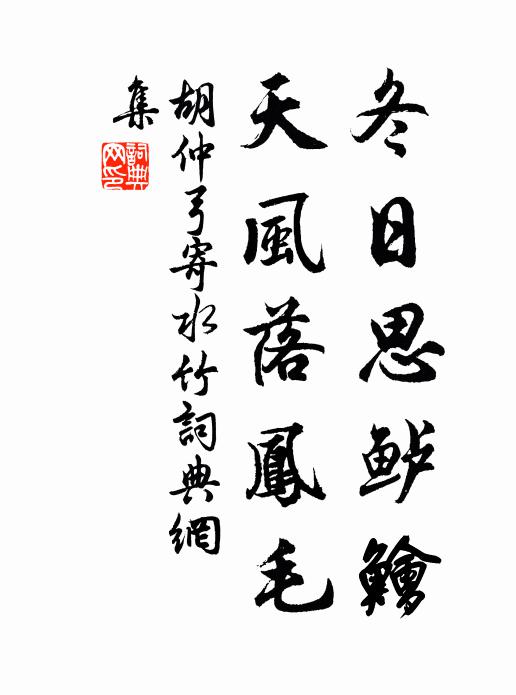 冬日思鲈鱠
天風落鳳毛
胡仲弓寄水竹詞典網
集
詞典網印